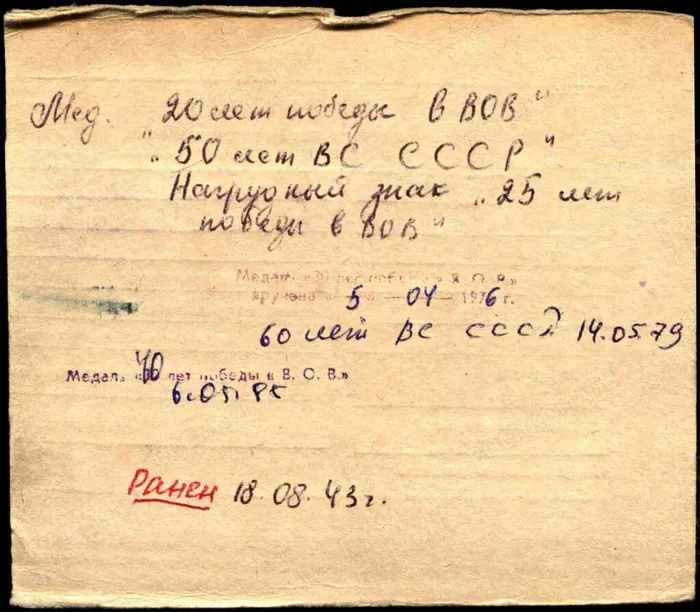 Мед. 20 лет победы в ВОВ"
"50 лет ВС СССР"
Нагрудный знак "25 лет
победы в ВОВ"
Медаль « лет победы в В.О.В.»
вручена « 5 » — 04 — 1976 г.
60 лет ВС СССР 14.05.79
Медаль «40 лет победы в В. О. В.»
6.05.85
Ранен 18.08.43 г.